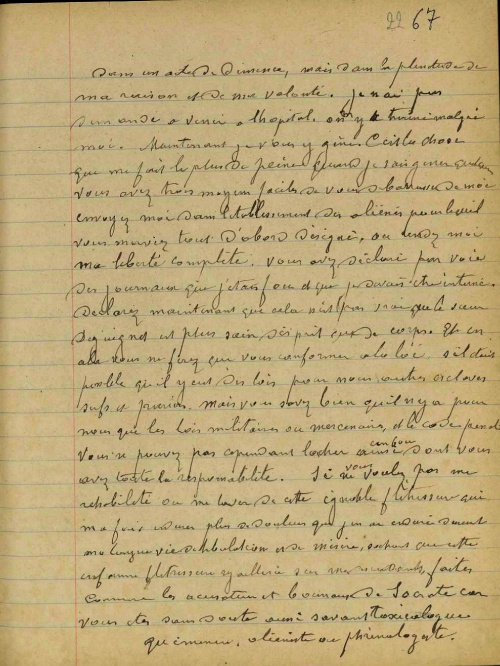 22 67
dans un acte de démence, mais dans la plénitude de
ma raison et de ma volonté. je n'ai pas
demandé a venir a lhopital. on m'y a trainé malgré
moi. Maintenant je vous y gêne. C'est la chose
que me fait le plus de peine quand je sais gener quelqu'un
vous avez trois moyens faciles de vous débarrasser de moi
envoyez moi dans l'établissement des aliénés pour lequel
vous m'aviez tous d'abord désigné, ou rendez moi
ma liberté complète. vous avez déclaré par voie
des journaux que j'étais fou et que je devais être interné.
déclarez maintenant que cela n'est pas vrai que le sieur
Deguignet est plus sain d'esprit que de corps. Et en
cela vous ne ferez que vous conformer a la loi s'il était
possible qu'il y eut des lois pour nous autres esclaves
serfs et parias. mais vous savez bien qu'il n'y a pour
nous que les lois militaires ou mercenaires, et le code pénal
vous ne pouvez pas cependant lacher ainsi un fou dont vous
avez toute la responsabilité. Si vous ne voulez pas me
rehabilité ou me laver de cette ignoble flétrissure qui
ma fais endurer plus de douleurs que j'en ai enduré durant
ma longue vie de tribulations et de misère, sachant que cette
infame flétrissure rejaillira sur mes enfants, faites
comme les accusateurs et bourreaux de Socrate car
vous etes sans doute aussi savant toxicologue
que éminent aliéniste ou phrénologiste.